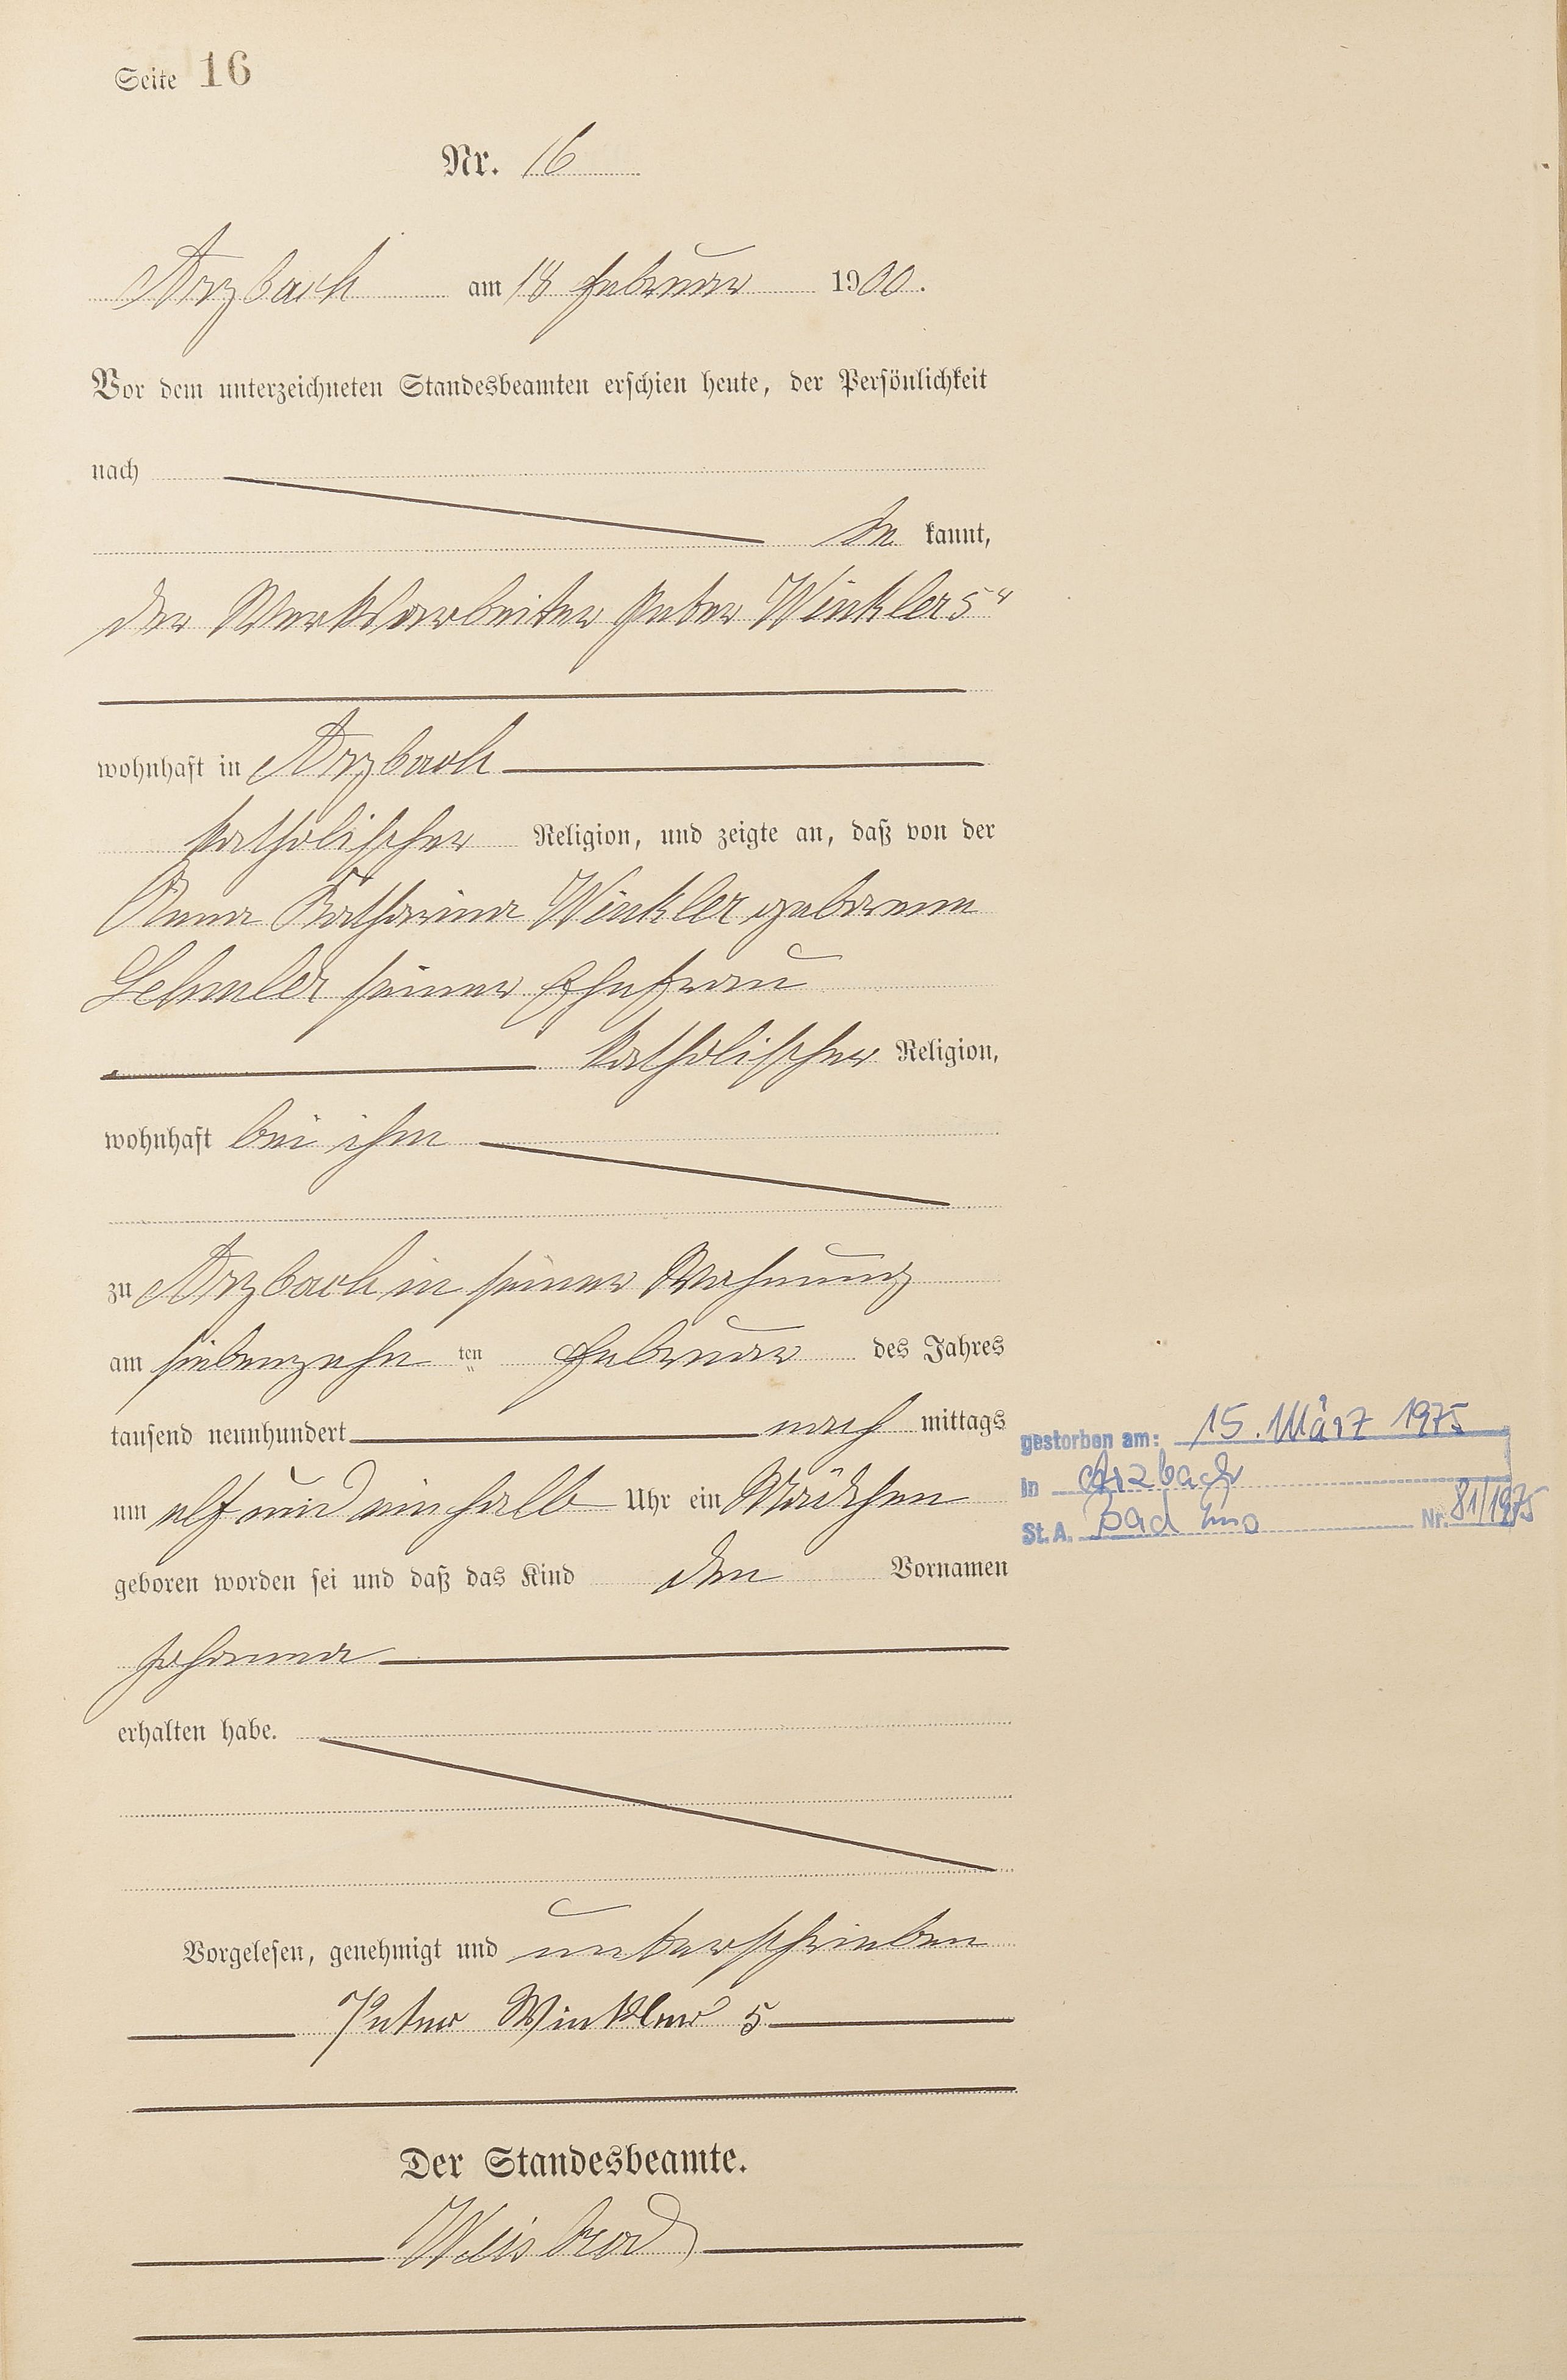 Seite 16
Nr. 16
Arzbach am 18 Februar 1900.
Vor dem unterzeichneten Standesbeamten erschien heute, der Persönlichkeit
nach
be kannt,
der Werksarbeiter Peter Winkler 5r
wohnhaft in Arzbach
katholischer Religion, und zeigte an, daß von der
Anna Katharina Winkler geborene
seiner Ehefrau
katholischer Religion,
wohnhaft bei ihm
zu Arzbach in seiner Wohnung
am siebenzehn ten Februar des Jahres
tausend neunhundert nach mittags
um elf und einhalb Uhr ein Mädchen
geboren worden sei und daß das Kind den Vornamen
Johanna
erhalten habe.
Vorgelesen, genehmigt und unterschrieben
Peter Winkler 5
Der Standesbeamte.
Weisbrod
gestorben am: 15. März 1975
in Arzbach
St. A. Bad Ems Nr. 81/1975